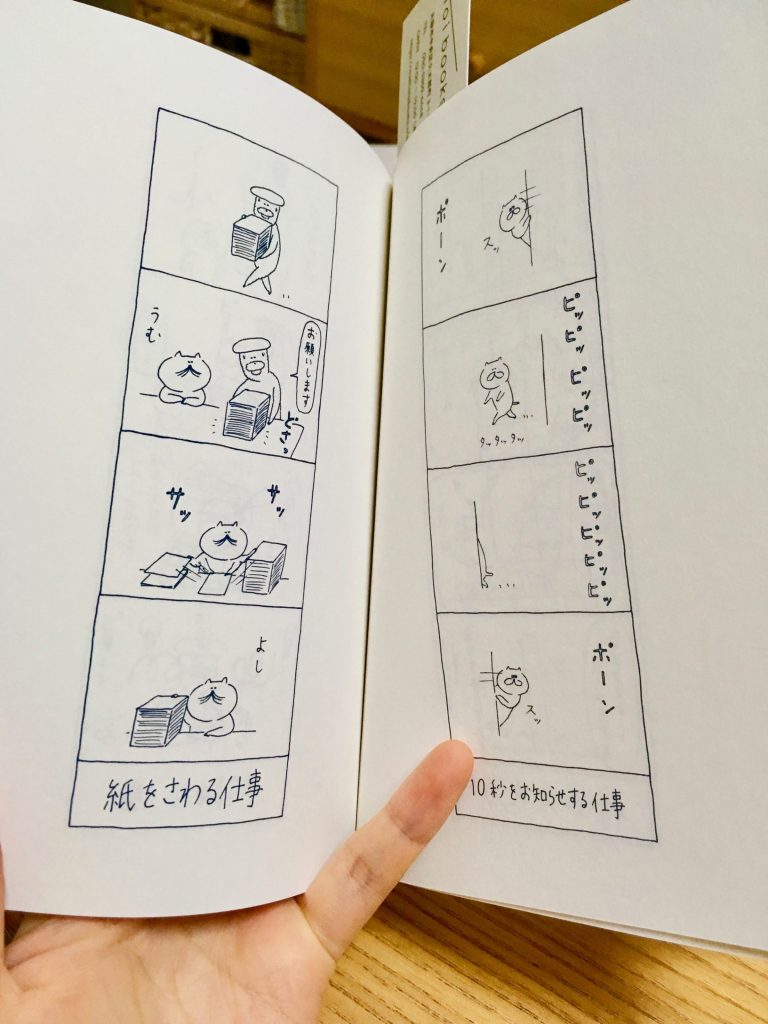 お願いします
うむ
どさっ
サッ
サッ
よし
紙をさわる仕事
ポーン
スッ
ピッピッピッピッ
タッタッタッ
ピッピッピッピッピッ
ポーン
スッ
10秒をお知らせする仕事